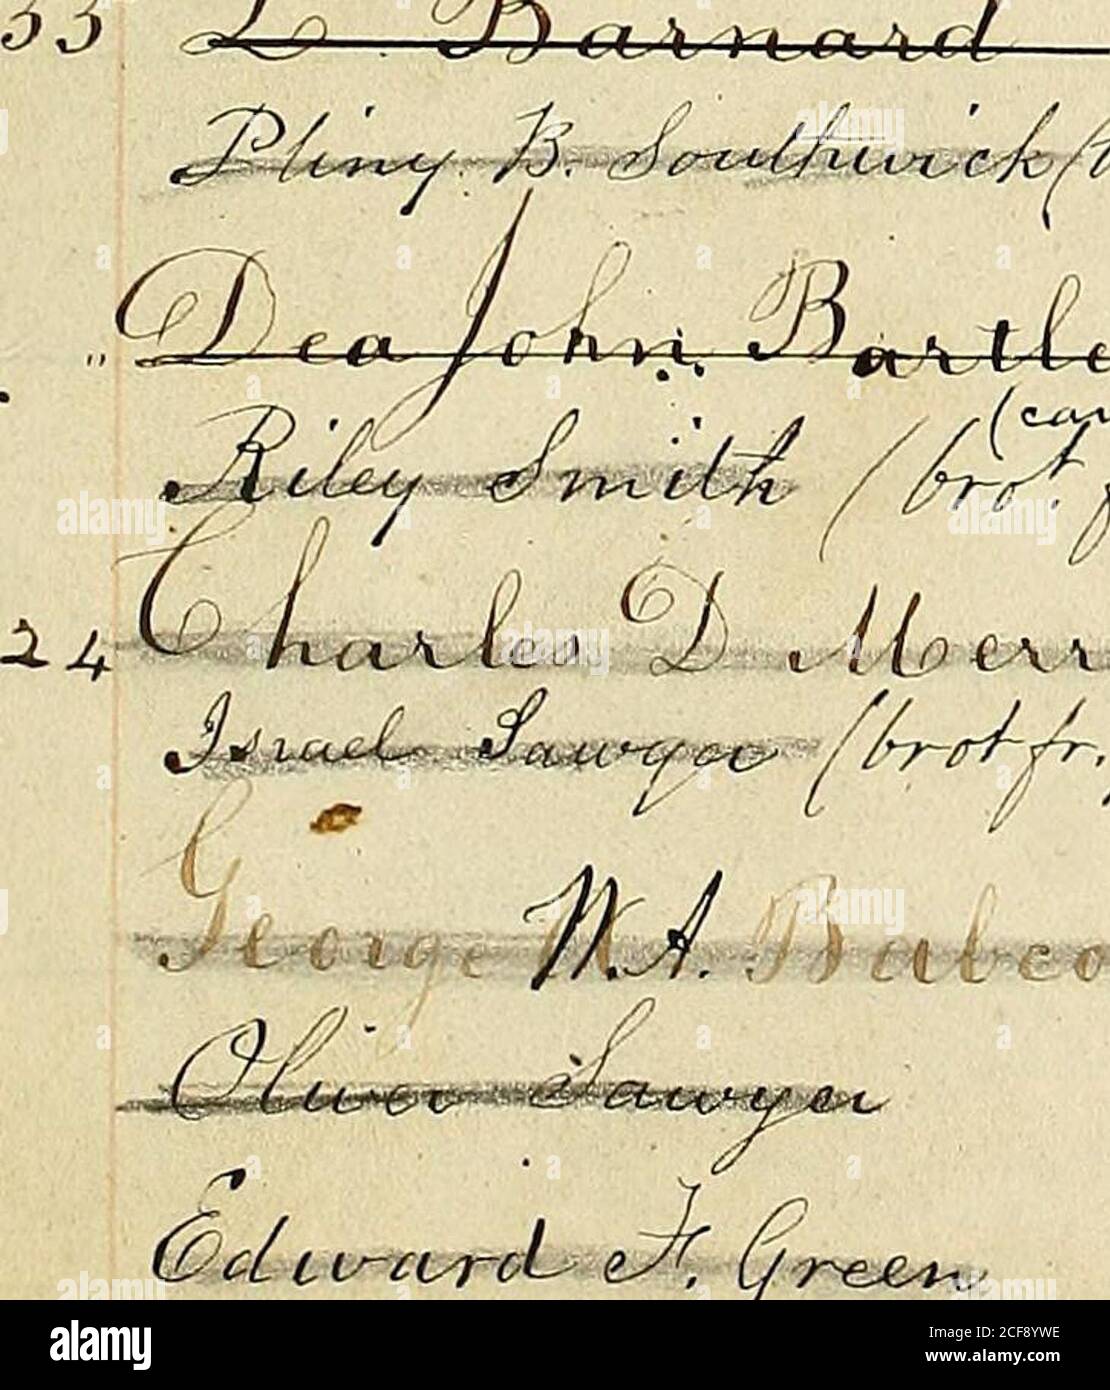 33 L. Barnard
Pliny B. Southwick (b
" Dea John Bartle
(car
Riley Smith (brot. f
24 Charles D Merr
Israel Sawyer (brot fr.
George W.A. Balco
Oliver Sawyer
Edward F. Green
alamy
Image ID: 2CF8YWE
www.alamy.com